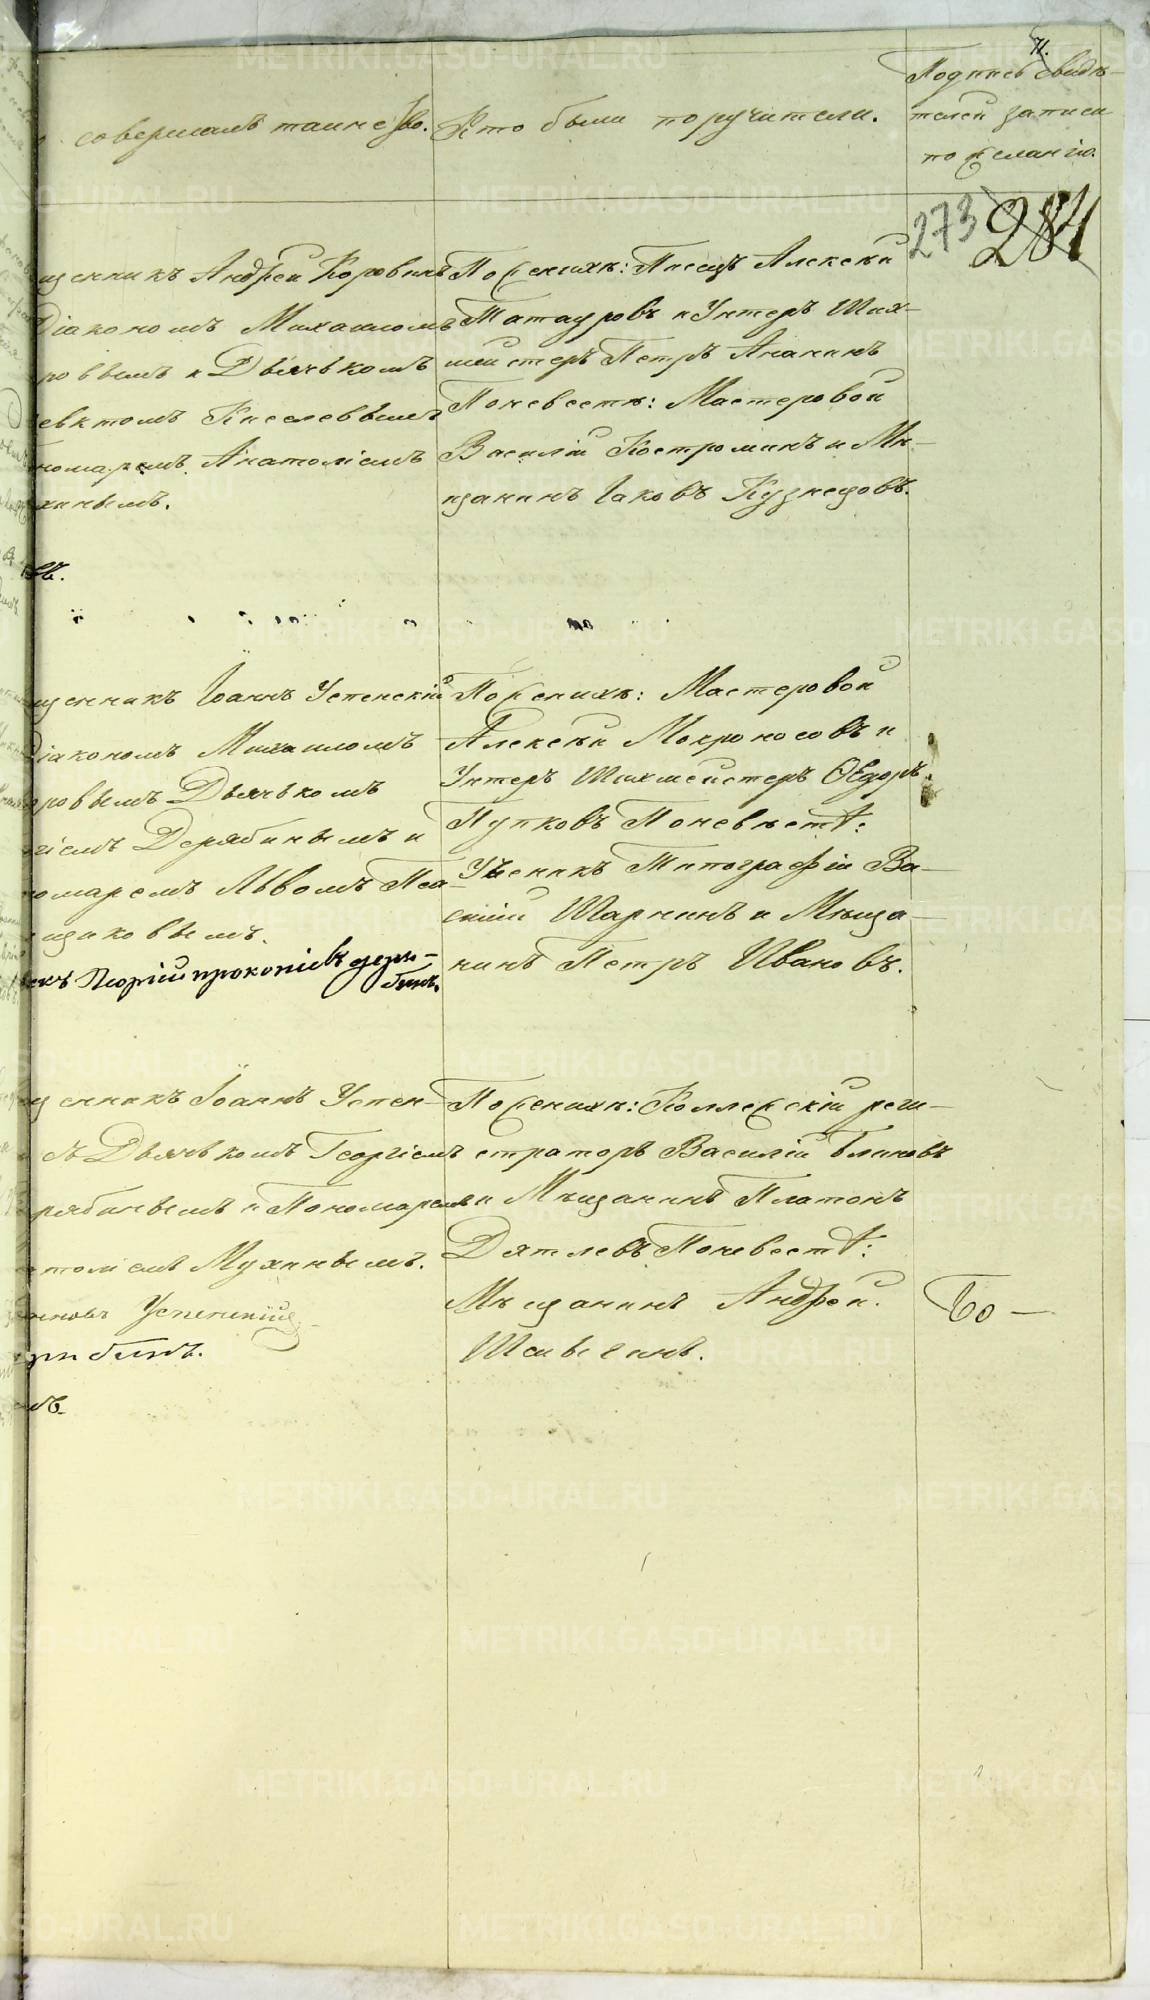 71.
совершалъ таинство.
Кто были поручители.
Подпись свидѣ-
телей записи
по желанію.
273 284
щенникъ Андрей Коровинъ
Діакономъ Михаиломъ
ровымъ и Дьячькомъ
Киселевымъ
номаремъ Анатоліемъ
хинымъ.
въ.
По женихѣ: Писецъ Алексѣй
Татауровъ и Унтеръ Ших-
мейстеръ Петръ Ананинъ
По невестѣ: Мастеровой
Василій Костроминъ и Мѣ-
щанинъ Іаковъ Кузнецовъ.
щенникъ Іоаннъ Успенскій
Діакономъ Михаиломъ
ровымъ Дьячькомъ
гіемъ Дерябинымъ и
номаремъ Львомъ
щиковымъ.
екъ Георгій прокопіевъ деря-
бинъ.
По женихѣ: Мастеровой
Алексѣй Мокроносовъ и
Унтеръ Шихмейстеръ Ѳедоръ
Пупковъ По невѣстѣ:
Ученикъ Типографіи Ва-
силій Шарнинъ и Мѣща-
нинъ Петръ Ивановъ.
щенникъ Іоаннъ Успен-
съ Дьячькомъ Георгіемъ
рябинымъ и Пономаремъ
толіемъ Мухинымъ.
Успенскій
рябинъ.
въ.
По женихѣ: Коллежскій реги-
страторъ Василій Блиновъ
и Мѣщанинъ Платонъ
Дятлевъ По невестѣ:
Мѣщанинъ Андрей
Бо—
METRIKI.GASO-URAL.RU